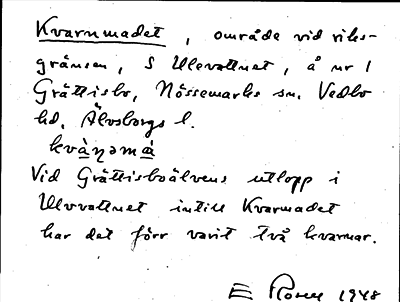 Kvarnmadet, område vid riks-
gränsen, S Ulevattnet, å nr 1
Grättisbo, Nössemarks sn. Vedbo
hd. Älvsborgs l.
kvàṇəmá
Vid Grättisboälvens utlopp i
Ulevattnet intill Kvarmadet
har det förr varit två kvarnar.
E 1948